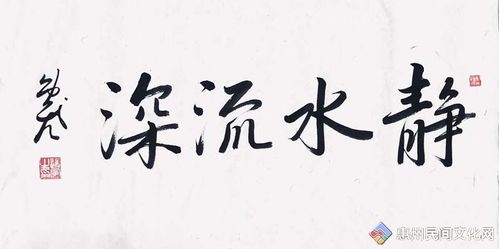 静水流深
惠州民间文化网